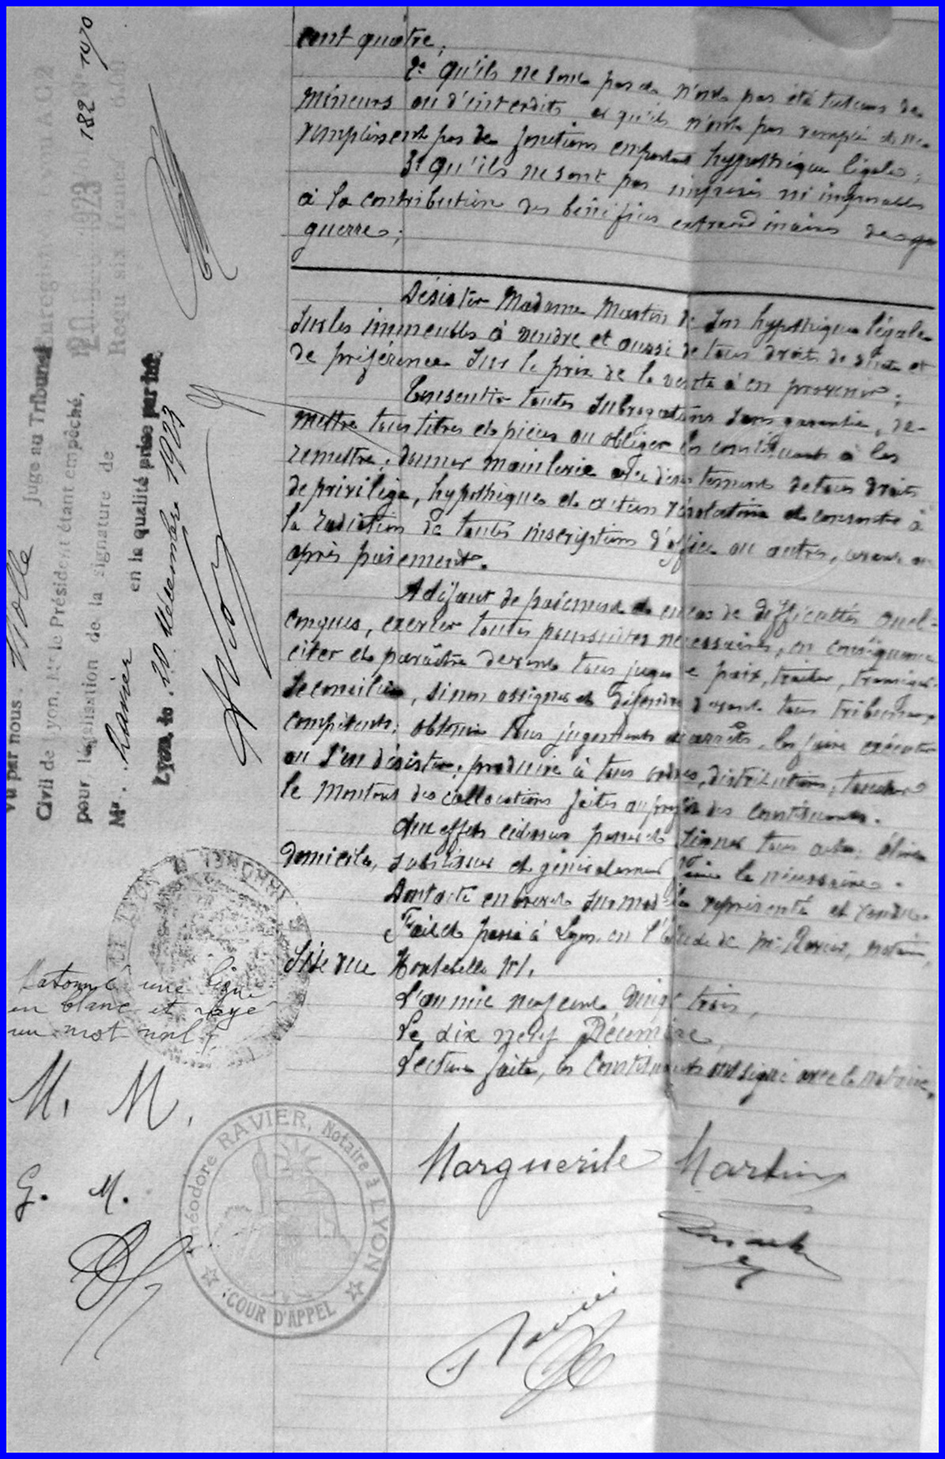 cent quatre;
2° qu'ils ne sont pas et n'ont pas été tuteurs de
mineurs ou d'interdits et qu'ils n'ont pas rempli et ne
remplissent pas de fonctions emportant hypothèque légale;
3° qu'ils ne sont pas imposés ni imposables
à la contribution des bénéfices extraordinaires de
guerre;
Désister Madame Martin de son hypothèque légale
sur les immeubles à vendre et aussi de tous droit de suite et
de préférence sur le prix de la vente à en provenir;
Consentir toutes subrogations sans garantie, re-
mettre tous titres et pièces ou obliger les constituants à les
remettre, donner mainlevée avec désistement de tous droits
de privilège, hypothèques et action résolutoire et consentir à
la radiation de toutes inscriptions d'office ou autres, avant ou
après paiement.
A défaut de paiement et en cas de difficultés quel-
conques, exercer toutes poursuites nécessaires, en conséquence
citer et paraître devant tous juges de paix, traiter, transiger
se concilier, sinon assigner et défendre devant tous tribunaux
compétents; obtenir tous jugements et arrêts, les faire exécuter
ou s'en désister, produire à tous ordres, distributions, toucher
le montant des collocations faites au profit des constituants.
Aux effets ci-dessus passer et signer tous actes, élire
domicile, substituer et généralement faire le nécessaire.
Dont acte en brevet sur modèle représenté et rendu.
Fait et passé à Lyon, en l'étude de Me Ravier, notaire,
sise rue
L'an mil neuf cent vingt trois,
Le dix neuf Décembre,
Lecture faite, les Constituants ont signé avec le notaire.
Marguerite Martin
Ravier
Enregistré
DEC 1923
N° 1470
182
Reçu six francs
Vu par nous
Juge au Tribunal
Civil de Lyon, Mr le Président étant empêché,
pour légalisation de la signature de
Mr. Ravier
en la qualité prise par lui.
Lyon, le 20 Décembre 1923
une ligne
en blanc et rayé
un mot nul
M. M.
G. M.
Théodore RAVIER, Notaire à LYON
COUR D'APPEL